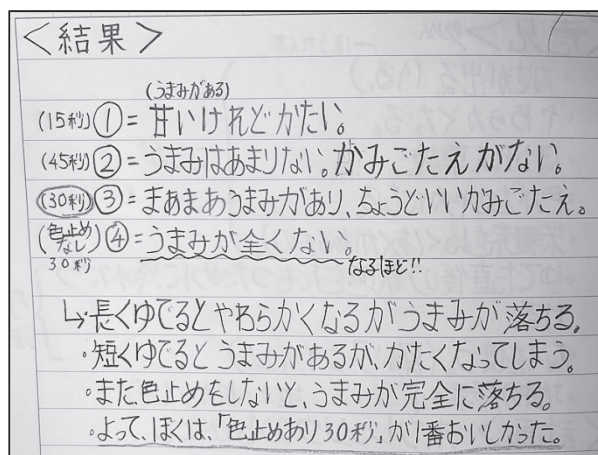 <結果>
(うまみがある)
(15秒)①=甘いけれどかたい。
(45秒)②=うまみはあまりない。かみごたえがない。
(30秒)③=まあまあうまみがあり、ちょうどいいかみごたえ。
(色止めなし30秒)④=うまみが全くない。
なるほど!!
↳長くゆでるとやわらかくなるがうまみが落ちる。
・短くゆでるとうまみがあるが、かたくなってしまう。
・また色止めをしないと、うまみが完全に落ちる。
・よって、ぼくは、「色止めあり30秒」が1番おいしかった。